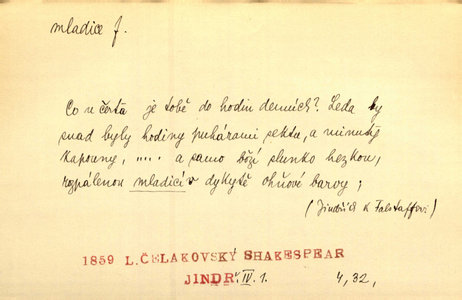 mladice f.
Co u čerta je tobě do hodin denních? Leda by
snad byly hodiny puhárami sektu, a minuty
kapouny, ..... a samo boží slunko hezkou,
rozpálenou mladicí v dykytě ohňové barvy;
(Jindřich k Falstaffovi)
1859 L.ČELAKOVSKÝ SHAKESPEAR
JINDŘ. IV. 1. 4, 32,